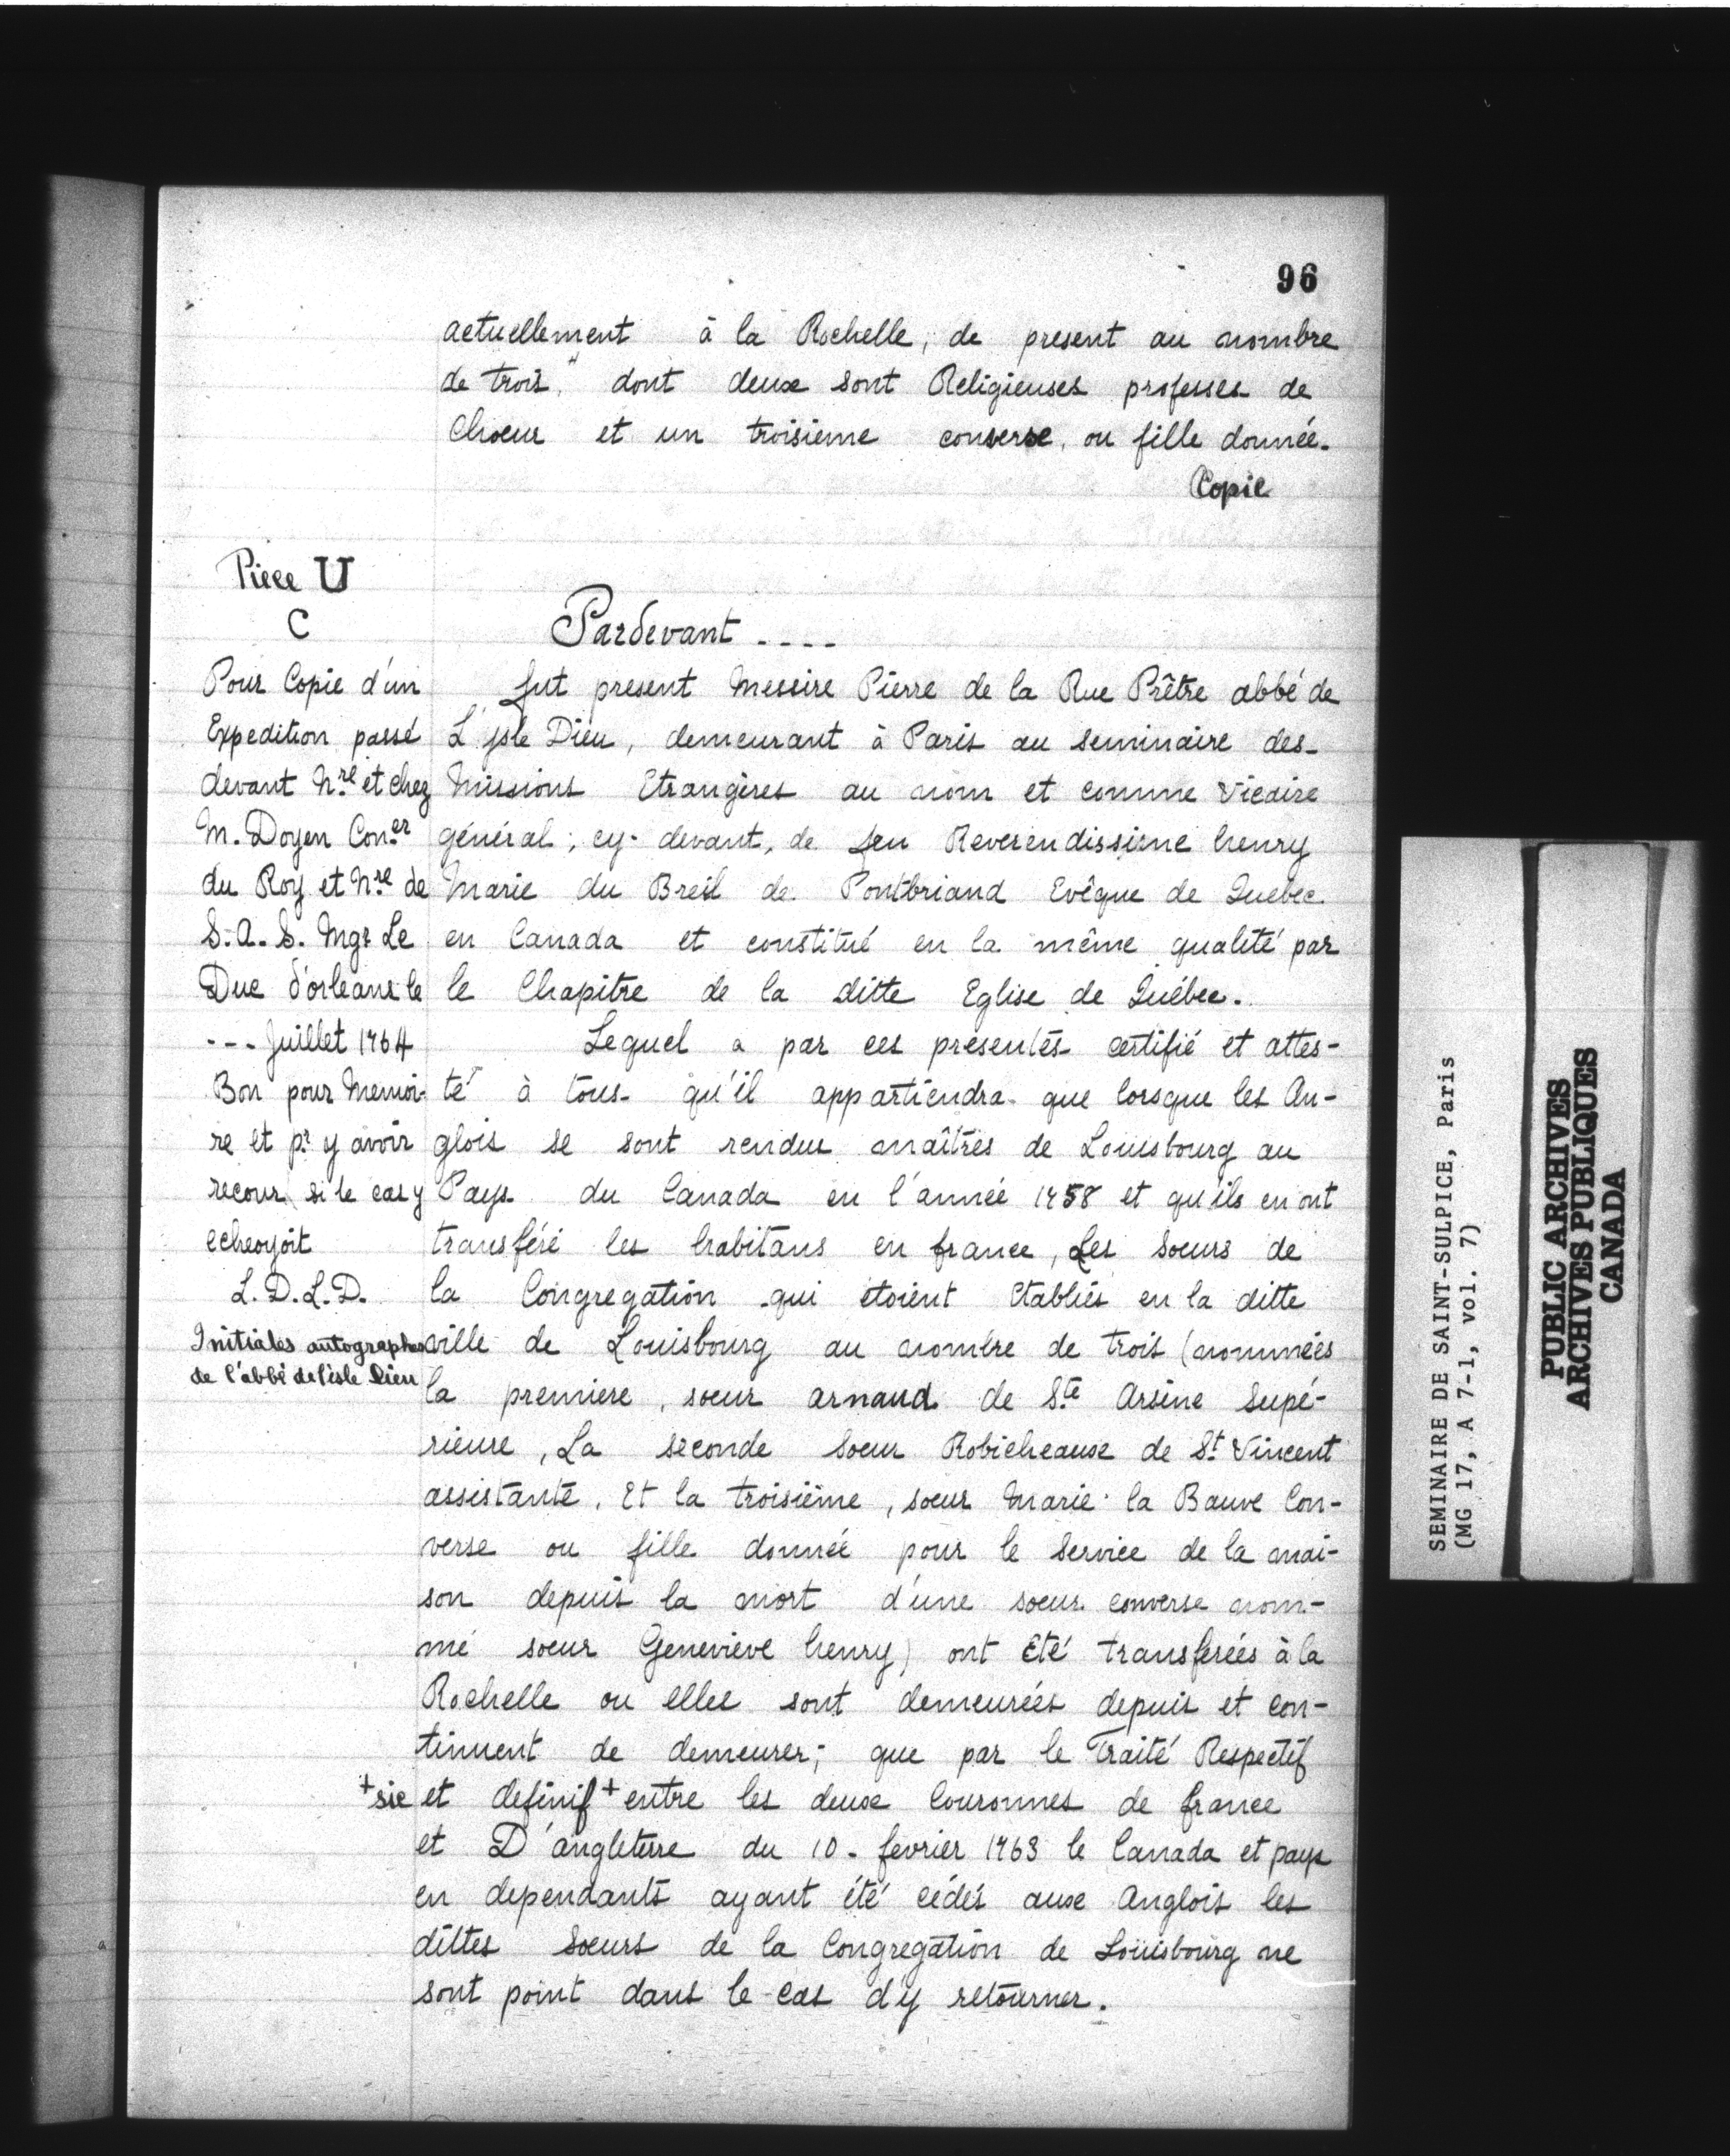 96
actuellement à la Rochelle, de present au nombre
de trois," dont deux sont Religieuses professes de
Choeur et un troisieme converse, ou fille donnée.
Copie
Piece U
C
Pour Copie d'un
Expedition passé
devant Nre et chez
M. Doyen Coner
du Roy et Nre de
S. A. S. Mgr Le
Duc d'orleans le
--- Juillet 1764
Bon pour Memoi-
re et pr y avoir
recours si le cas y
echeoyoit
L. D. L. D.
Initiales autographes
de l'abbé de l'isle Dieu
Pardevant ----
fut present Messire Pierre de la Rue Prêtre abbé de
L'Isle Dieu, demeurant à Paris au seminaire des
Missions Etrangères au nom et comme Vicaire
général; cy-devant, de feu Reverendissime henry
Marie du Breil de Pontbriand Evêque de Quebec
en Canada et constitué en la même qualité par
le Chapitre de la ditte Eglise de Québec.
Lequel a par ces presentes certifié et attes-
té à tous qu'il appartiendra que lorsque les An-
glois se sont rendus maîtres de Louisbourg au
Pays du Canada en l'année 1758 et qu'ils en ont
transféré les habitans en france, Les Soeurs de
la Congregation qui étoient Etablies en la ditte
ville de Louisbourg au nombre de trois (nommées
la premiere, soeur arnaud de Ste Arsène Supé-
rieure, La seconde Soeur Robicheaux de St Vincent
assistante, Et la troisième, soeur Marie la Bauve Con-
verse ou fille donnée pour le Service de la mai-
son depuis la mort d'une soeur converse nom-
mé soeur Geneviève henry) ont Eté transferées à la
Rochelle ou elles sont demeurées depuis et con-
tinuent de demeurer; que par le Traité Respectif
+sic et definif+ entre les deux Couronnes de france
et D'angleterre du 10. fevrier 1763 le Canada et pays
en dependants ayant été cédés aux Anglois les
dittes Soeurs de la Congregation de Louisbourg ne
sont point dans le cas d'y retourner.
SEMINAIRE DE SAINT-SULPICE, Paris
(MG 17, A 7-1, vol. 7)
PUBLIC ARCHIVES
ARCHIVES PUBLIQUES
CANADA